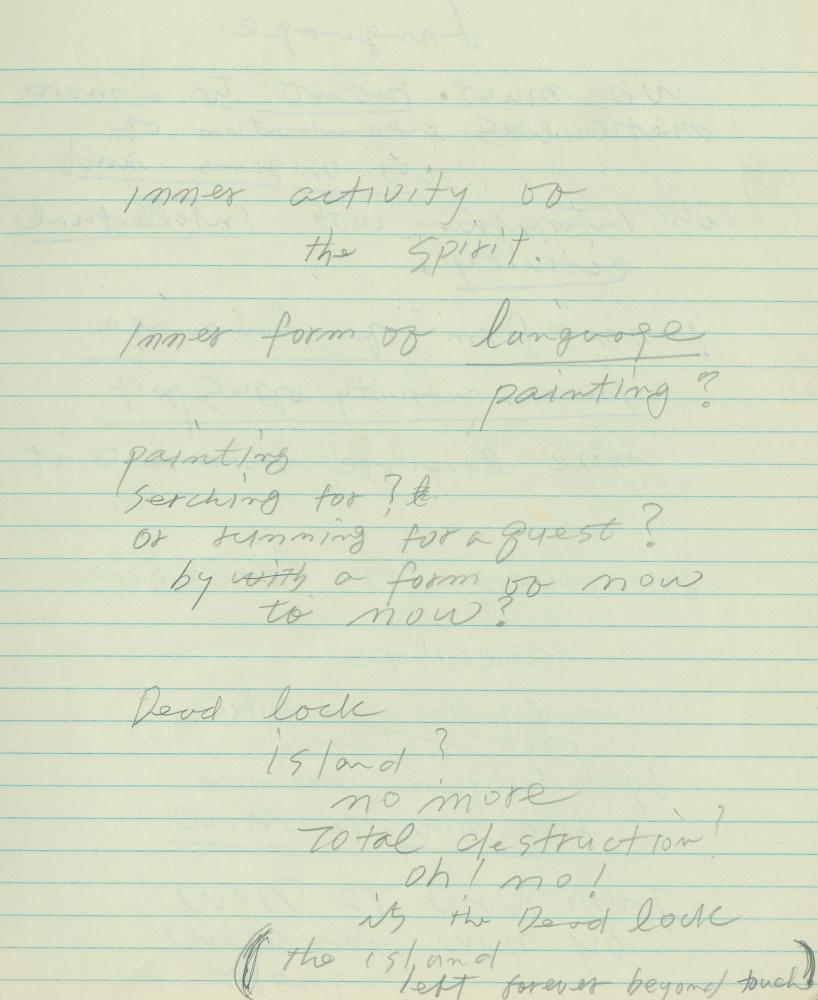 Inner activity of
the Spirit.
Inner form of language
painting?
painting
serching for?
or running for a quest?
by with a form of now
to now?
Dead lock
island?
no more
Total destruction?
oh! no!
its the Dead lock
(the island
left forever beyond touch)